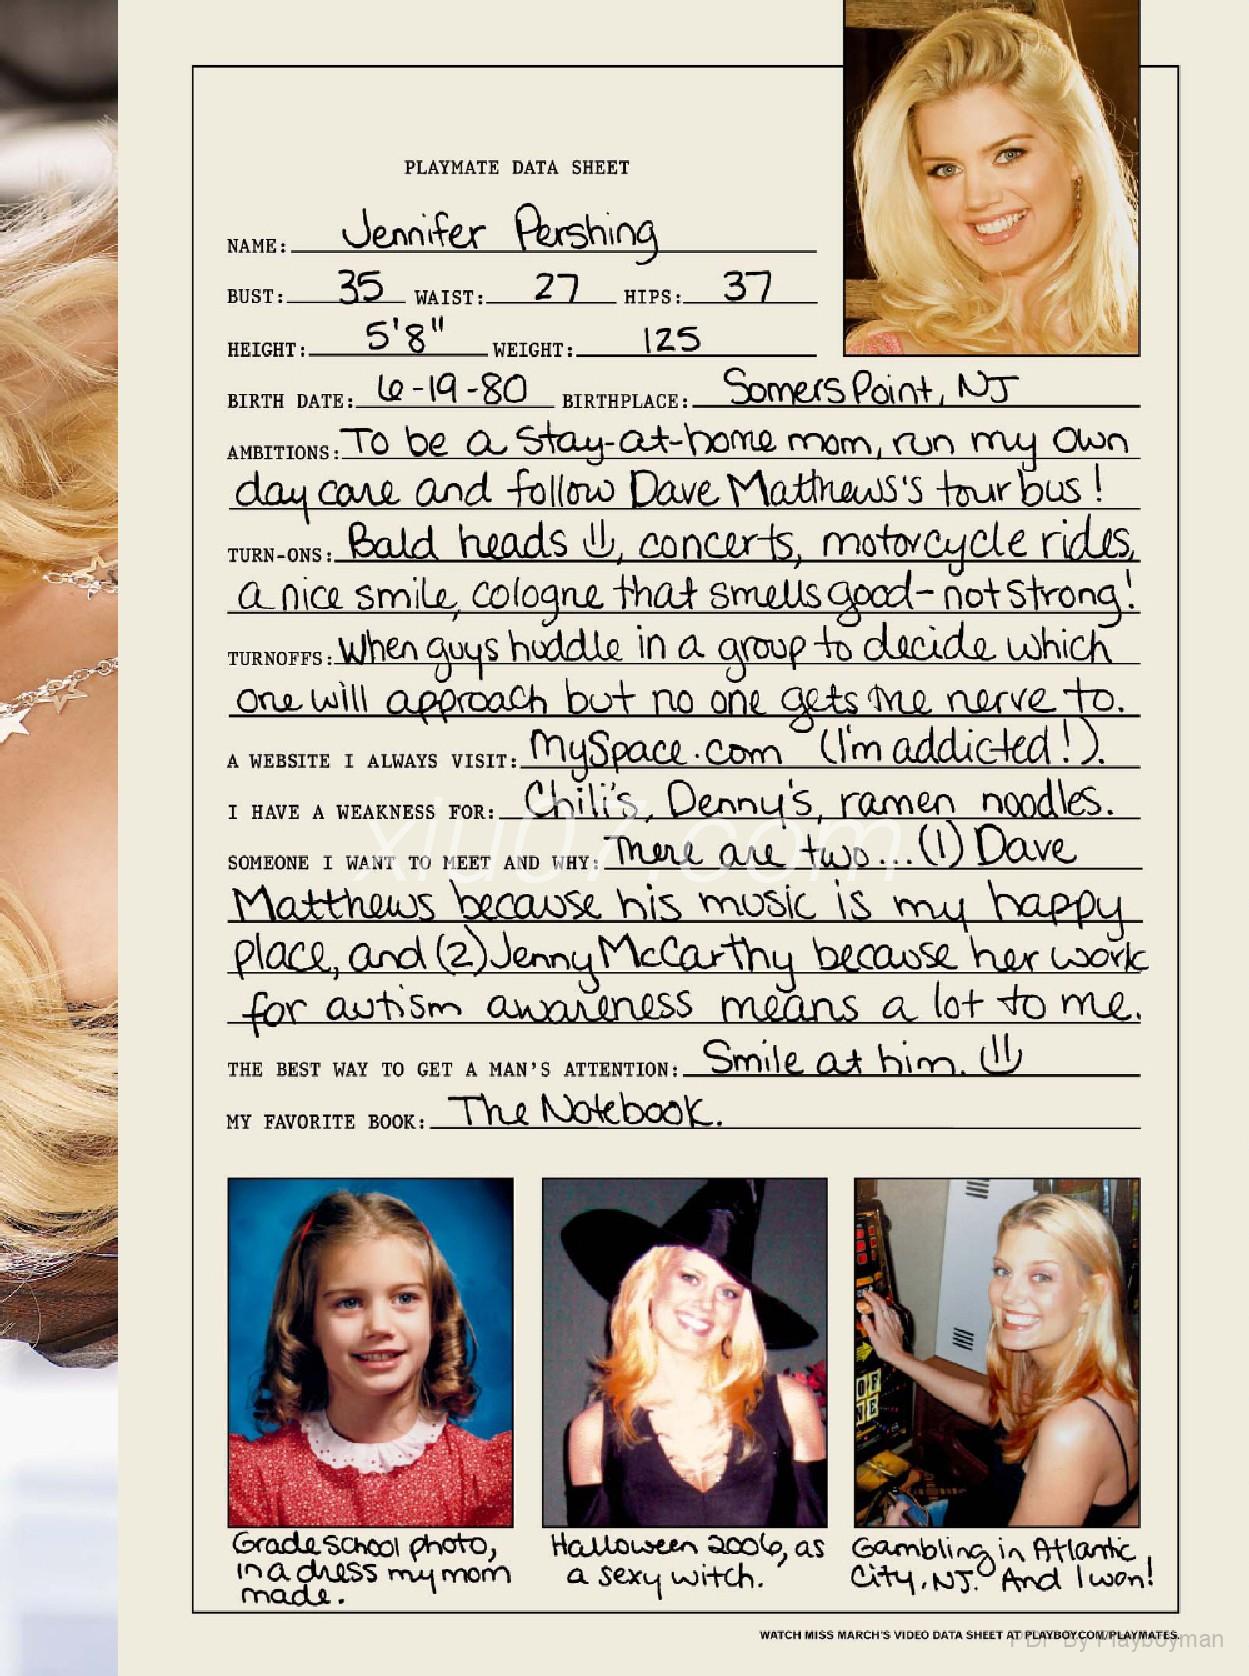 PLAYMATE DATA SHEET
NAME: Jennifer Pershing
BUST: 35 WAIST: 27 HIPS: 37
HEIGHT: 5'8" WEIGHT: 125
BIRTH DATE: 6-19-80 BIRTHPLACE: Somers Point, NJ
AMBITIONS: To be a stay-at-home mom, run my own
day care and follow Dave Matthews's tour bus!
TURN-ONS: Bald heads, concerts, motorcycle rides,
a nice smile, cologne that smells good-not strong!
TURNOFFS: When guys huddle in a group to decide which
one will approach but no one gets the nerve to.
A WEBSITE I ALWAYS VISIT: MySpace.com (I'm addicted!).
I HAVE A WEAKNESS FOR: Chili's, Denny's, ramen noodles.
xiu07.com
SOMEONE I WANT TO MEET AND WHY: There are two...(1) Dave
Matthews because his music is my happy
place, and (2) Jenny McCarthy because her work
for autism awareness means a lot to me.
THE BEST WAY TO GET A MAN'S ATTENTION: Smile at him.
MY FAVORITE BOOK: The Notebook.
Grade school photo,
in a dress my mom
made.
Halloween 2006, as
a sexy witch.
Gambling in Atlantic
City, NJ. And I won!
WATCH MISS MARCH'S VIDEO DATA SHEET AT PLAYBOY.COM/PLAYMATES.
PDF By Playboyman